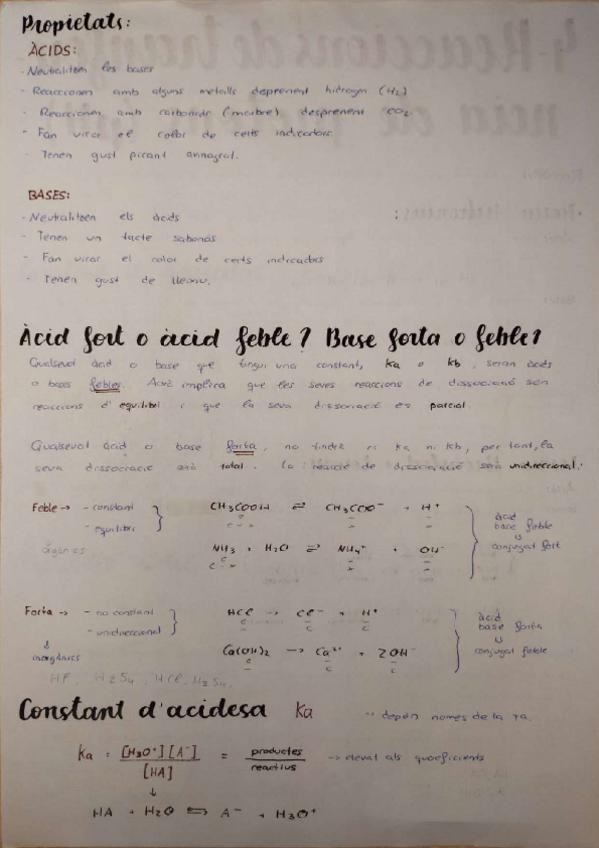 Propietats:
ÀCIDS:
- Neutralitzen les bases
- Reaccionen amb alguns metalls desprenent hidrogen (H2)
- Reaccionen amb carbonats (marbre) desprenent CO2
- Fan virar el color de certs indicadors
- Tenen gust picant
BASES:
- Neutralitzen els àcids
- Tenen un tacte sabonós
- Fan virar el color de certs indicadors
- Tenen gust de lleixiu.
Àcid fort o àcid feble? Base forta o feble?
Qualsevol àcid o base que tingui una constant, ka o kb, seran àcids
o bases febles. Això implica que les seves reaccions de dissociació són
reaccions d'equilibri i que la seva dissociació és parcial.
Qualsevol àcid o base forta, no tindrà ni ka ni kb, per tant, la
seva dissociació serà total. La reacció de dissociació serà unidireccional.
Feble → - constant
- equilibri
orgànics
CH3COOH ⇄ CH3COO⁻ + H⁺
NH3 + H2O ⇄ NH4⁺ + OH⁻
àcid
base feble
conjugat fort
Forta → - no constant
- unidireccional
inorgànics
HF, H2S4, HCl, H2S4.
HCl → Cl⁻ + H⁺
Ca(OH)2 → Ca²⁺ + 2OH⁻
àcid
base forta
conjugat feble
Constant d'acidesa Ka → depèn nomes de la Ta.
Ka = [H3O⁺][A⁻] / [HA] = productes / reactius → elevat als quoeficients
↓
HA + H2O ⇆ A⁻ + H3O⁺